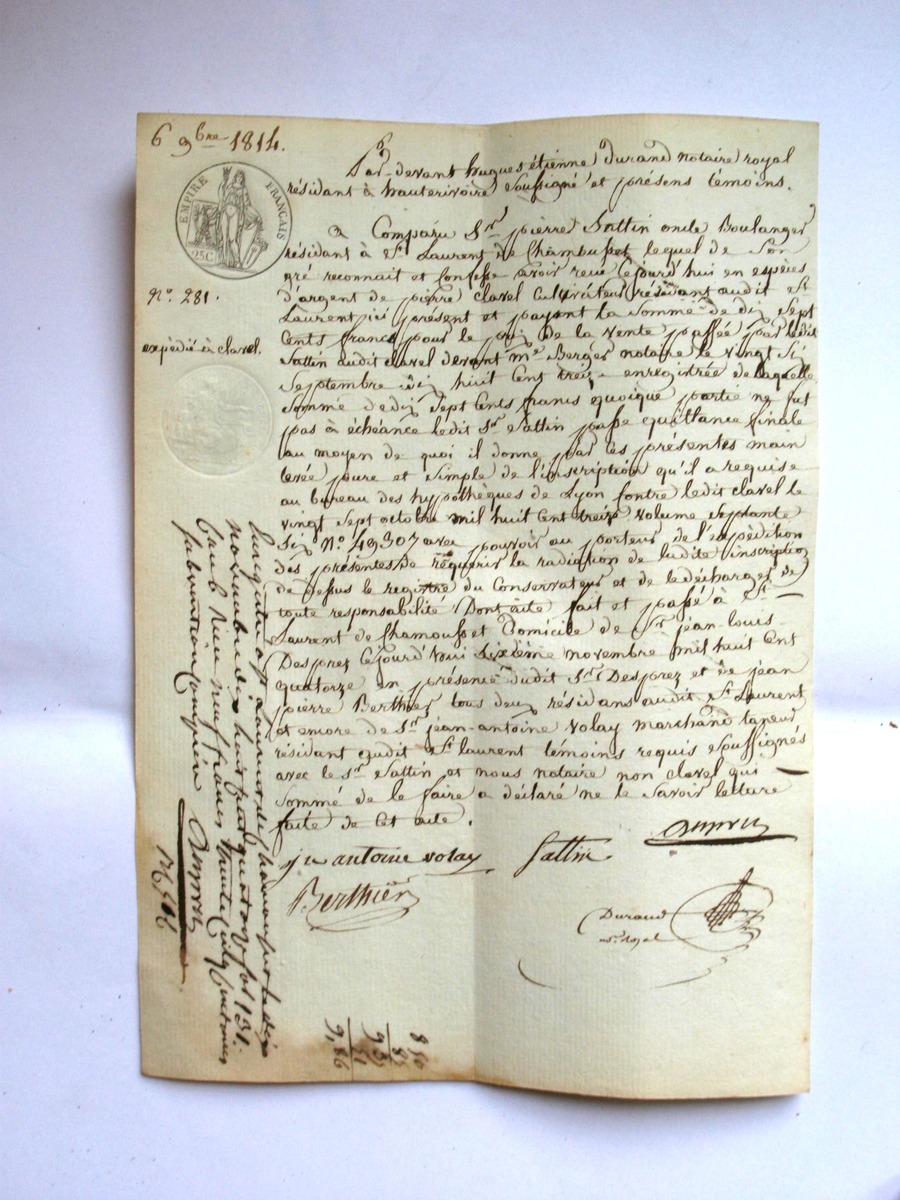 6 9bre 1814.
EMPIRE FRANÇAIS
25C
Par-devant hugues étienne durand notaire royal
résidant à hauterivoire soussigné et présens témoins.
A Comparu Sr. pierre Sattin oncle Boulanger
résidant à St. Laurent de Chamousset lequel de Son
gré reconnait et Confesse avoir reçu Cejourd'hui en espèces
d'argent de pierre clavel Cultivateur résidant audit St.
Laurent ici présent et payant la Somme de dix Sept
Cents francs pour le prix de la vente passée par ledit
Sattin audit clavel devant Me. Berger notaire le vingt Six
Septembre dix huit Cent treize enregistrée de laquelle
Somme de dix Sept Cents francs quoique partie ne fut
pas à échéance ledit Sr. Sattin passe quittance finale
au moyen de quoi il donne par les présentes main
levée pure et Simple de l'inscription qu'il a requise
au bureau des hypothèques de Lyon Contre ledit clavel le
vingt Sept octobre mil huit Cent treize volume Septante
Six No. 49307 avec pouvoir au porteur de l'expédition
des présentes de requérir la radiation de ladite inscription
de dessus le registre du Conservateur et de le décharger de
toute responsabilité Dont acte fait et passé à St.
Laurent de Chamousset Domicile de Sr. jean-louis
Desprez Cejourd'hui Sixième novembre mil huit Cent
quatorze en présence dudit Sr. Desprez et de jean
pierre Berthier tous deux résidans audit St. Laurent
et encore de Sr. jean-antoine Volay marchand taneur
résidant audit St. laurent témoins requis Soussignés
avec le Sr. Sattin et nous notaire non clavel qui
Sommé de le faire a déclaré ne le Savoir lecture
faite de Cet acte.
jn antoine volay
Sattin
Berthier
Durand
No. royal
No. 281.
expédié à clavel.
novembre dix huit cent quatorze fol 131.
neuf francs trente Cinq Centimes
Subvention Comprise
8 50
85
9 35
51
9,86